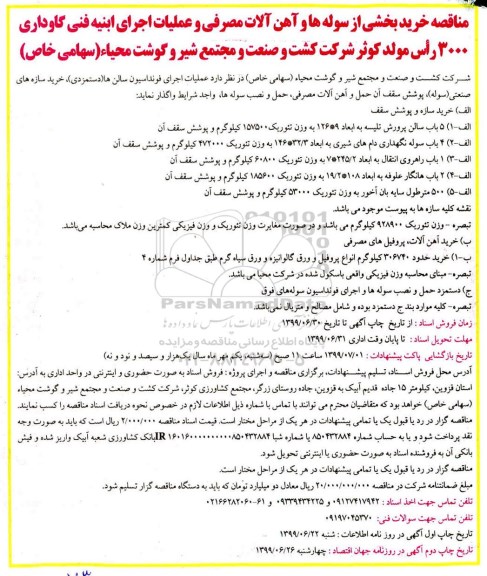 مناقصه خرید بخشی از سوله ها و آهن آلات مصرفی و عملیات اجرای ابنیه فنی گاوداری
۳۰۰۰ رأس مولد کوثر شرکت کشت و صنعت و مجتمع شیر و گوشت محیاء(سهامی خاص)
شرکت کشت و صنعت و مجتمع شیر و گوشت محیاء (سهامی خاص) در نظر دارد عملیات اجرای فونداسیون سالن ها(دستمزدی)، خرید سازه های
صنعتی(سوله)، پوشش سقف آن حمل و آهن آلات مصرفی، حمل و نصب سوله ها، واجد شرایط واگذار نماید:
الف) خرید سازه و پوشش سقف
الف-۱) ۵ باب سالن پرورش تلیسه به ابعاد ۹*۱۲۶ به وزن تئوریک ۱۵۷۵۰۰ کیلوگرم و پوشش سقف آن
الف-۲) ۴ باب سوله نگهداری دام های شیری به ابعاد ۳۲/۳*۱۴۶ به وزن تئوریک ۴۷۲۰۰۰ کیلوگرم و پوشش سقف آن
الف-۳) ۱ باب راهروی انتقال به ابعاد ۲۴۵/۲*۷ به وزن تئوریک ۶۰۸۰۰ کیلوگرم و پوشش سقف آن
الف-۴) ۲ باب هانگار علوفه به ابعاد ۱۰۸*۱۹/۲ به وزن تئوریک ۱۸۵۶۰۰ کیلوگرم و پوشش سقف آن
الف-۵) ۵۰۰ مترطول سایه بان آخور به وزن تئوریک ۵۳۰۰۰ کیلوگرم و پوشش سقف آن
نقشه کلیه سازه ها به پیوست موجود می باشد.
تبصره - وزن تئوریک ۹۲۸۹۰۰ کیلوگرم می باشد و در صورت مغایرت وزن تئوریک و وزن فیزیکی کمترین وزن ملاک محاسبه می‌باشد.
ب) خرید آهن آلات، پروفیل های مصرفی
ب-۱) خرید حدود ۳۰۶۷۴۰ کیلوگرم انواع پروفیل و ورق گالوانیزه و ورق سیاه گرم طبق جداول فرم شماره ۴
تبصره- مبنای محاسبه وزن فیزیکی واقعی باسکول شده در شرکت محیا می باشد.
ج) دستمزد حمل و نصب سوله ها و اجرای فونداسیون سوله‌های فوق
تبصره- کلیه موارد بند ج دستمزد بوده و شامل مصالح و متریال نمی‌باشد.
زمان فروش اسناد : از تاریخ چاپ آگهی تا تاریخ ۱۳۹۹/۰۶/۳۰
مهلت تحویل اسناد: تا پایان وقت اداری ۱۳۹۹/۰۶/۳۱
تاریخ بازگشایی پاکت پیشنهادات: ۱۳۹۹/۰۷/۰۱ ساعت ۱۱ صبح (سه‌شنبه، یکم مهر ماه سال یک‌هزار و سیصد و نود و نه)
آدرس محل فروش اسناد، تسلیم پیشنهادات، برگزاری مناقصه و اجرای پروژه : فروش اسناد به صورت حضوری و اینترنتی در واحد اداری به آدرس:
استان قزوین، کیلومتر ۱۵ جاده قدیم آبیک به قزوین، جاده روستای زرگر، مجتمع کشاورزی کوثر، شرکت کشت و صنعت و مجتمع شیر و گوشت محیاء
(سهامی خاص) خواهد بود که متقاضیان محترم می توانند با تماس با شماره ذیل اطلاعات لازم در خصوص نحوه دریافت اسناد مناقصه را کسب نمایند.
مناقصه گزار در رد یا قبول یک یا تمامی پیشنهادات در هر یک از مراحل مختار است. قیمت اسناد مناقصه ۲/۰۰۰/۰۰۰ ریال است که باید به صورت وجه
نقد پرداخت شود و یا به حساب شماره ۸۵۰۴۳۲۸۸۴ یا شماره شبا IR ۱۶۰۱۶۰۰۰۰۰۰۰۰۰۰۰۸۵۰۴۳۲۸۸۴ بانک کشاورزی شعبه آبیک واریز شده و فیش
بانکی آن به فروشنده اسناد به صورت حضوری یا اینترنتی تحویل شود.
مناقصه گزار در رد یا قبول یک یا تمامی پیشنهادات در هر یک از مراحل مختار است.
مبلغ ضمانتنامه شرکت در مناقصه ۲۰/۰۰۰/۰۰۰/۰۰۰ ریال معادل دو میلیارد تومان که باید به دستگاه مناقصه گزار تسلیم شود.
تلفن تماس جهت اخذ اسناد : ۰۹۱۲۷۴۱۷۹۴۲ و ۰۹۳۳۹۴۳۴۲۲۵ و ۶۱-۰۲۱۶۶۲۸۲۰۶۰
تلفن تماس جهت سوالات فنی: ۰۹۱۹۷۰۴۵۳۷۰
تاریخ چاپ اول آگهی در روز نامه اطلاعات : شنبه ۱۳۹۹/۰۶/۲۲
تاریخ چاپ دوم آگهی در روزنامه جهان اقتصاد : چهارشنبه ۱۳۹۹/۰۶/۲۶